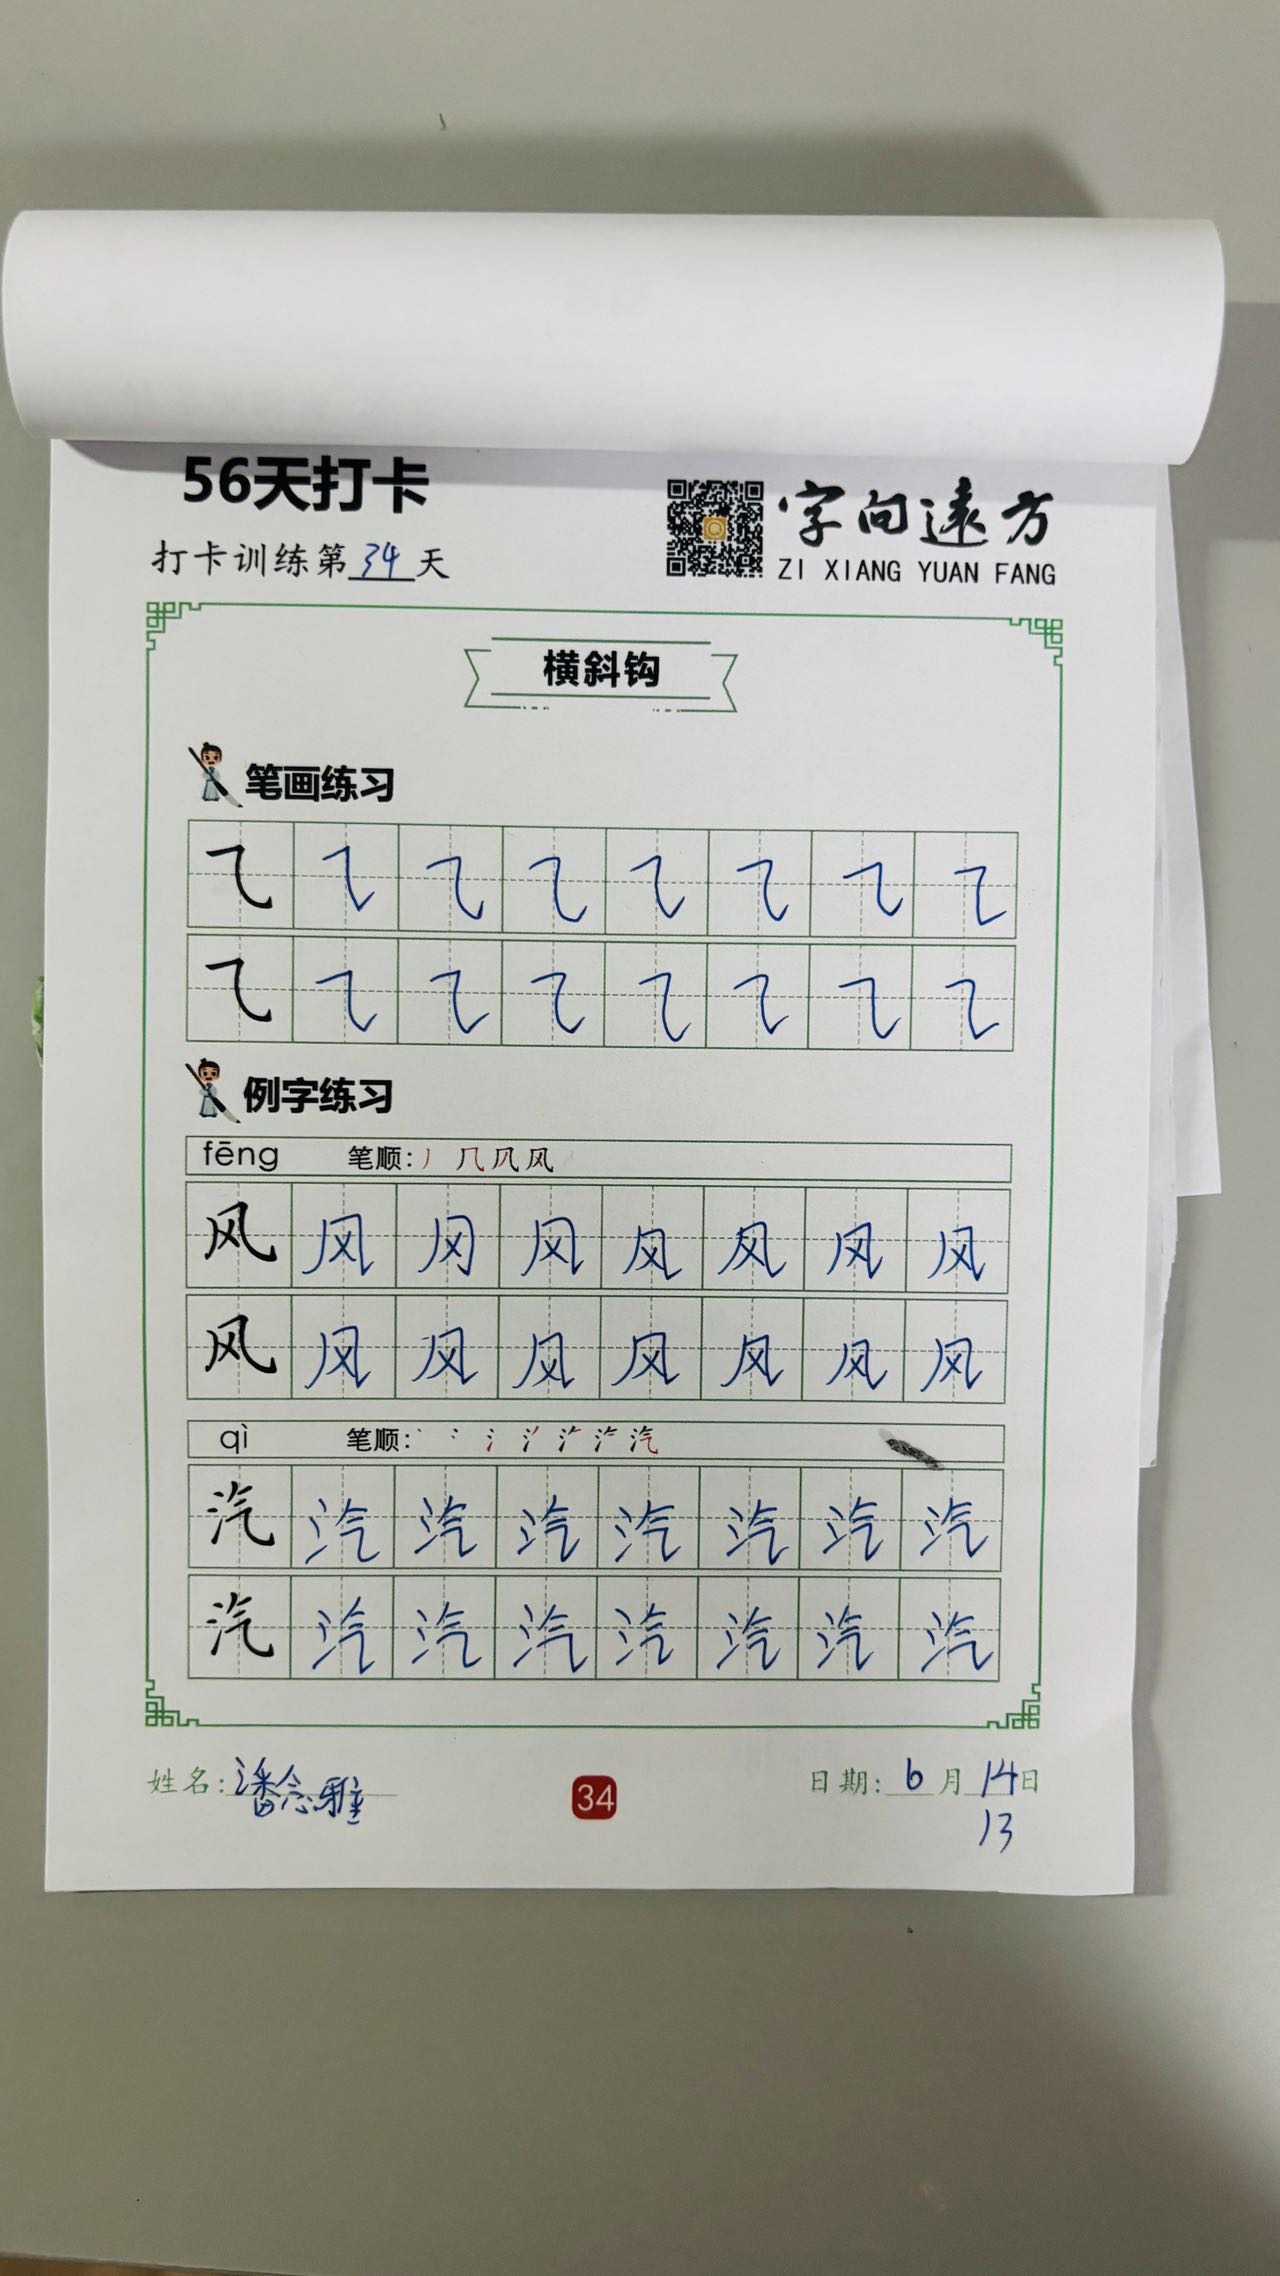 56天打卡
字向遠方
打卡训练第34天
ZI XIANG YUAN FANG
横斜钩
笔画练习
⺄ ⺄ ⺄ ⺄ ⺄ ⺄ ⺄ ⺄
⺄ ⺄ ⺄ ⺄ ⺄ ⺄ ⺄ ⺄
例字练习
fēng 笔顺: 丿 几 凤 风
风 风 风 风 风 风 风 风
风 风 风 风 风 风 风 风
qì 笔顺: 汽
汽 汽 汽 汽 汽 汽 汽 汽
汽 汽 汽 汽 汽 汽 汽 汽
姓名: 潘念雅 34 日期: 6月14日
13